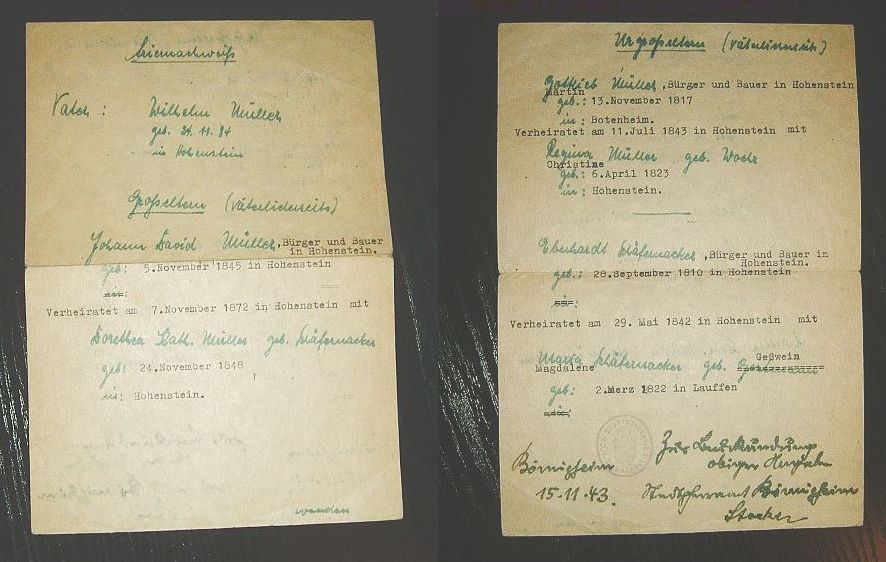 Ariernachweiß
Vater : Wilhelm Müller
geb. 24.11.84
in Hohenstein
Großeltern (väterlicherseits)
Johann David Müller, Bürger und Bauer
in Hohenstein.
geb: 5.November 1845 in Hohenstein
in:
Verheiratet am 7.November 1872 in Hohenstein mit
Dorothea Kath. Müller geb. Schäfernacker
geb: 24.November 1848
in: Hohenstein.
wenden
Urgroßeltern (väterlicherseits)
Gottlieb Müller, Bürger und Bauer in Hohenstein
Martin
geb.: 13.November 1817
in: Botenheim.
Verheiratet am 11.Juli 1843 in Hohenstein mit
Regina Müller geb.
Christine
geb.: 6.April 1823
in: Hohenstein.
Eberhardt Schäfernacker, Bürger und Bauer in
Hohenstein.
geb.: 28.September 1810 in Hohenstein
in:
Verheiratet am 29. Mai 1842 in Hohenstein mit
Geßwein
Maria Schäfernacker geb.
Magdalene
geb: 2.Merz 1822 in Lauffen
in:
Zur Beurkundung
Bönnigheim obiger Angaben
15.11.43. Stadtpfarramt Bönnigheim